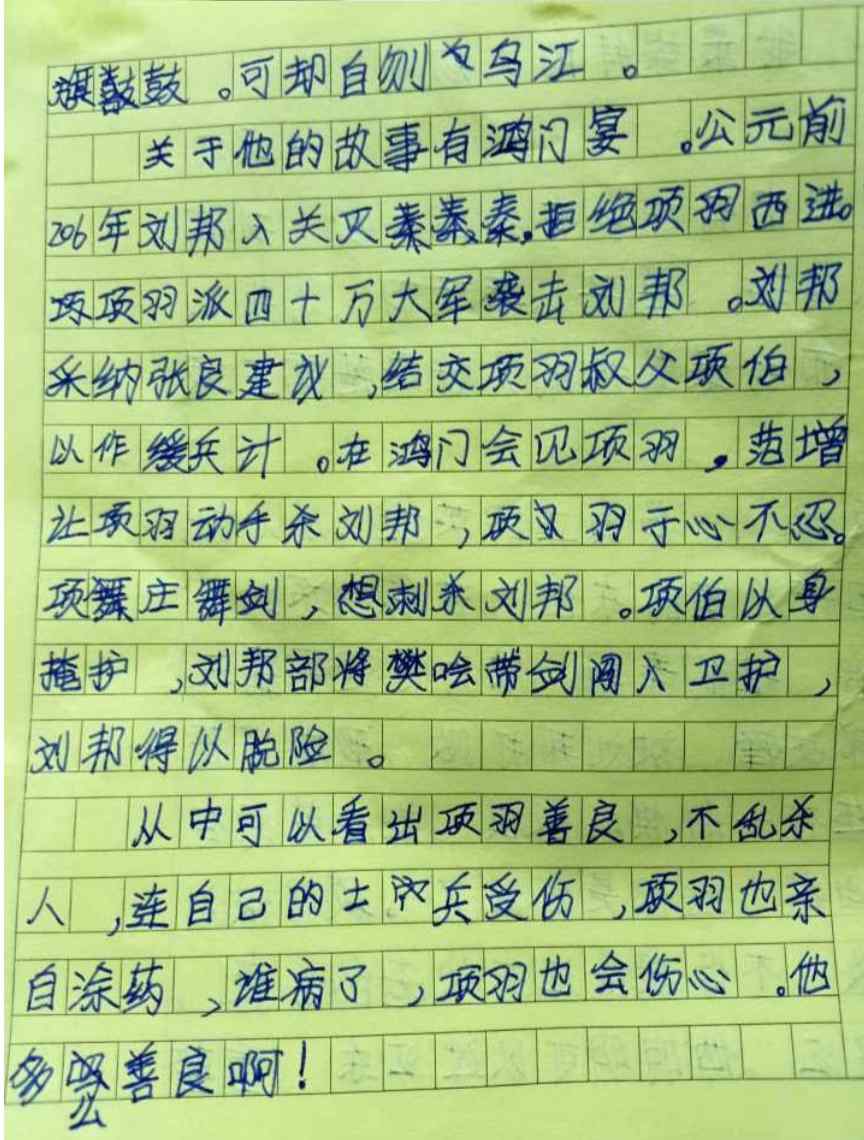 旗鼓。可却自刎乌江。
关于他的故事有鸿门宴。公元前
206年刘邦入关灭秦,拒绝项羽西进。
项羽派四十万大军袭击刘邦。刘邦
采纳张良建议,结交项羽叔父项伯,
以作缓兵计。在鸿门会见项羽,范增
让项羽动手杀刘邦,项羽于心不忍。
项庄舞剑,想刺杀刘邦。项伯以身
掩护,刘邦部将樊哙带剑闯入卫护,
刘邦得以脱险。
从中可以看出项羽善良,不乱杀
人,连自己的士兵受伤,项羽也亲
自涂药,谁病了,项羽也会伤心。他
多么善良啊!